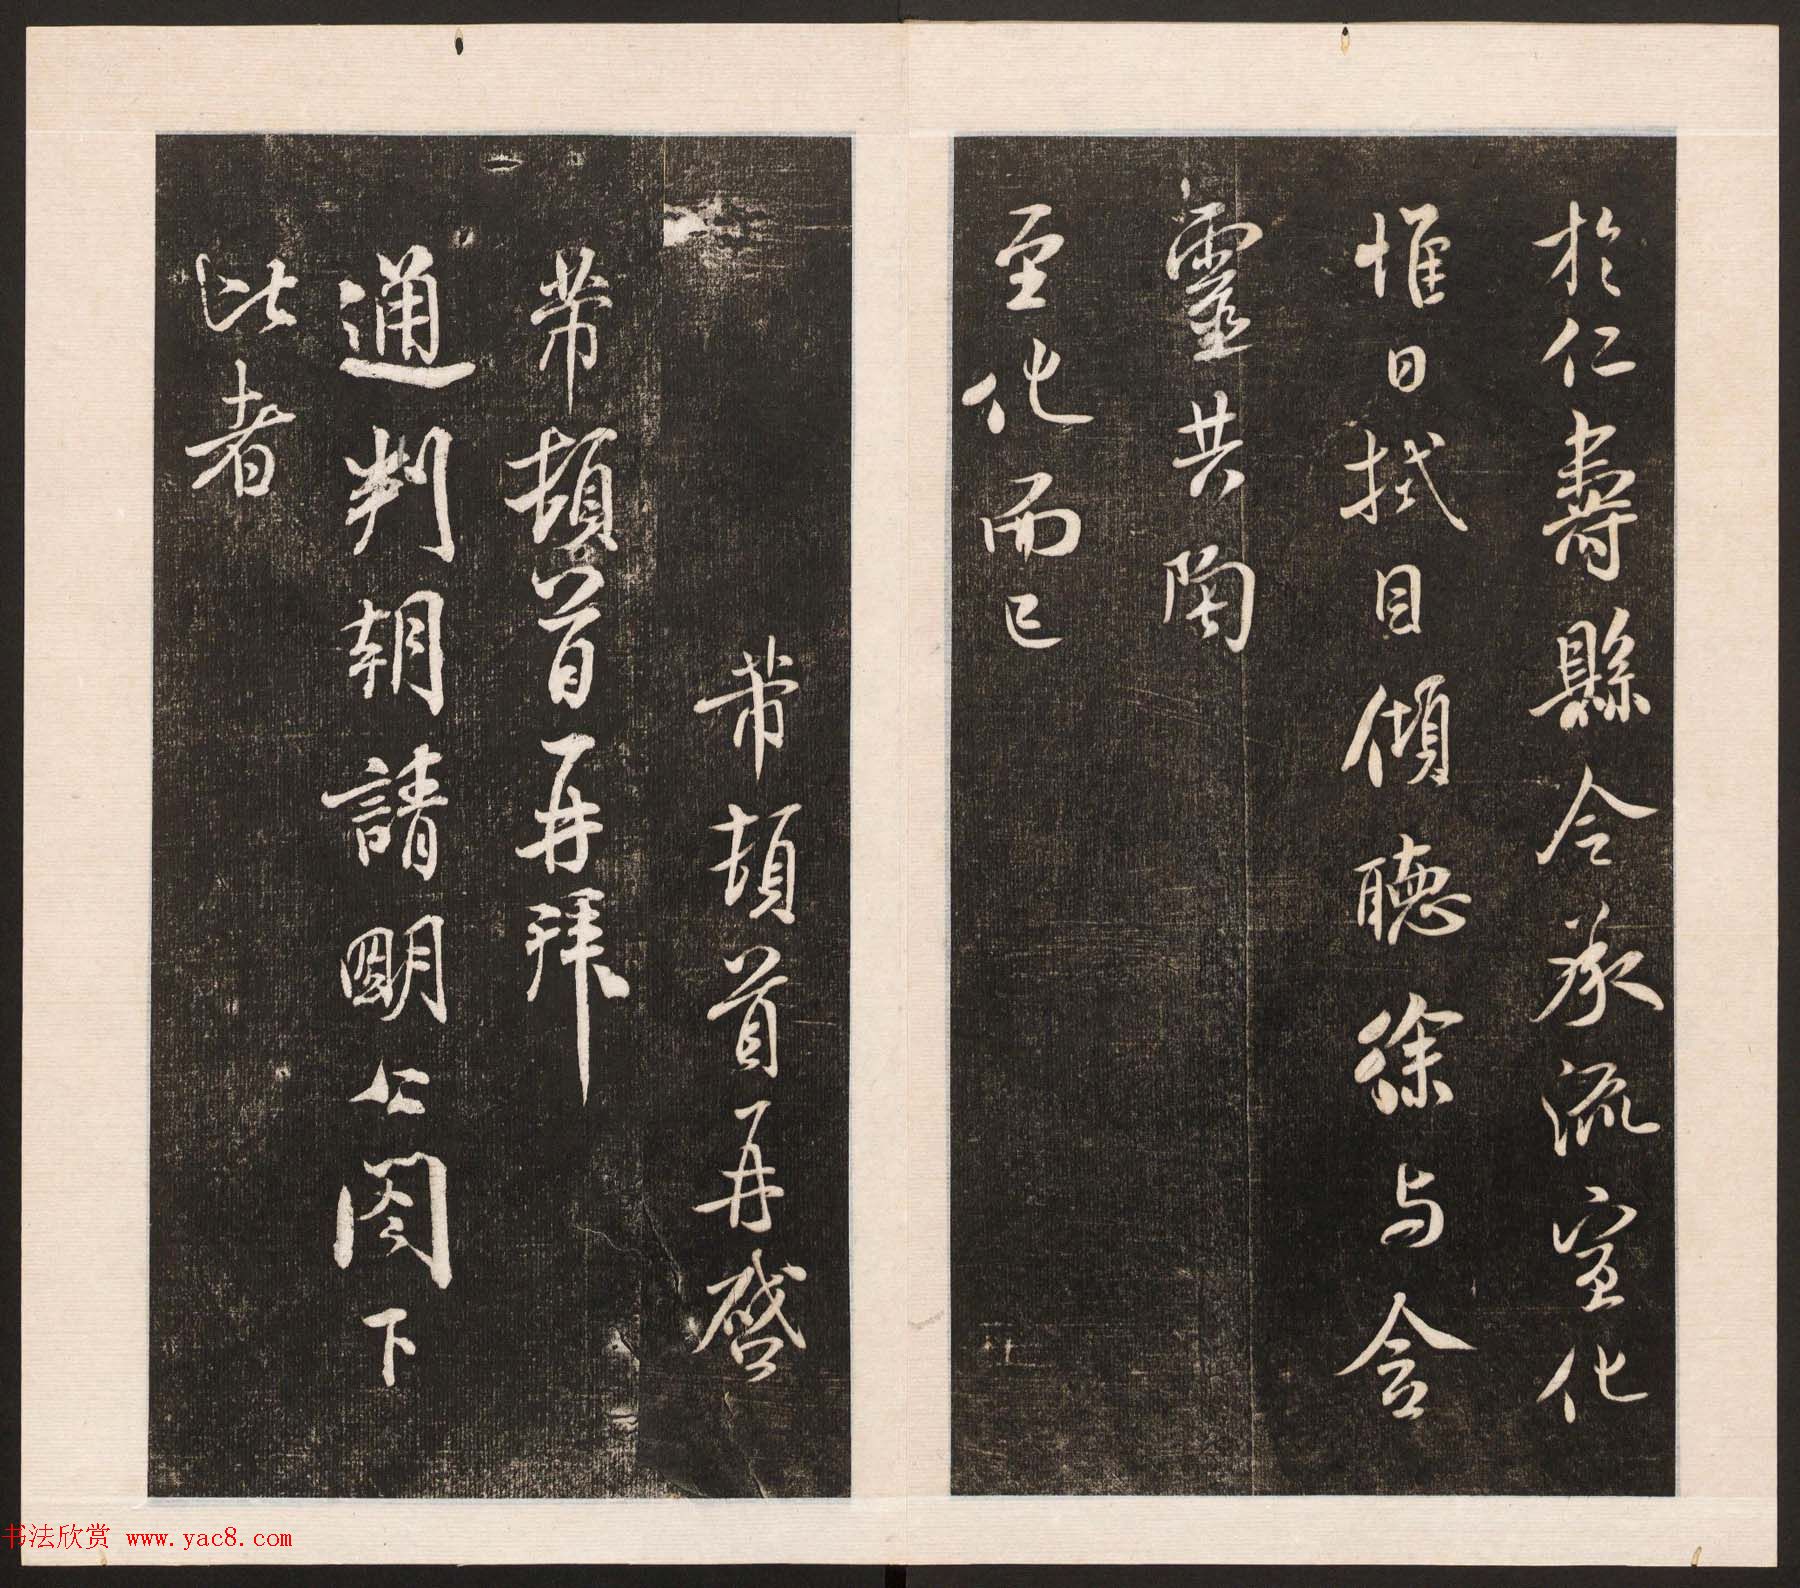 於仁壽縣令承流宣化
惟日拭目傾聽徐与含
靈共陶
至化而已
芾頓首再啓
芾頓首再拜
通判朝請明公閣下
比者
书法欣赏 www.yac8.com